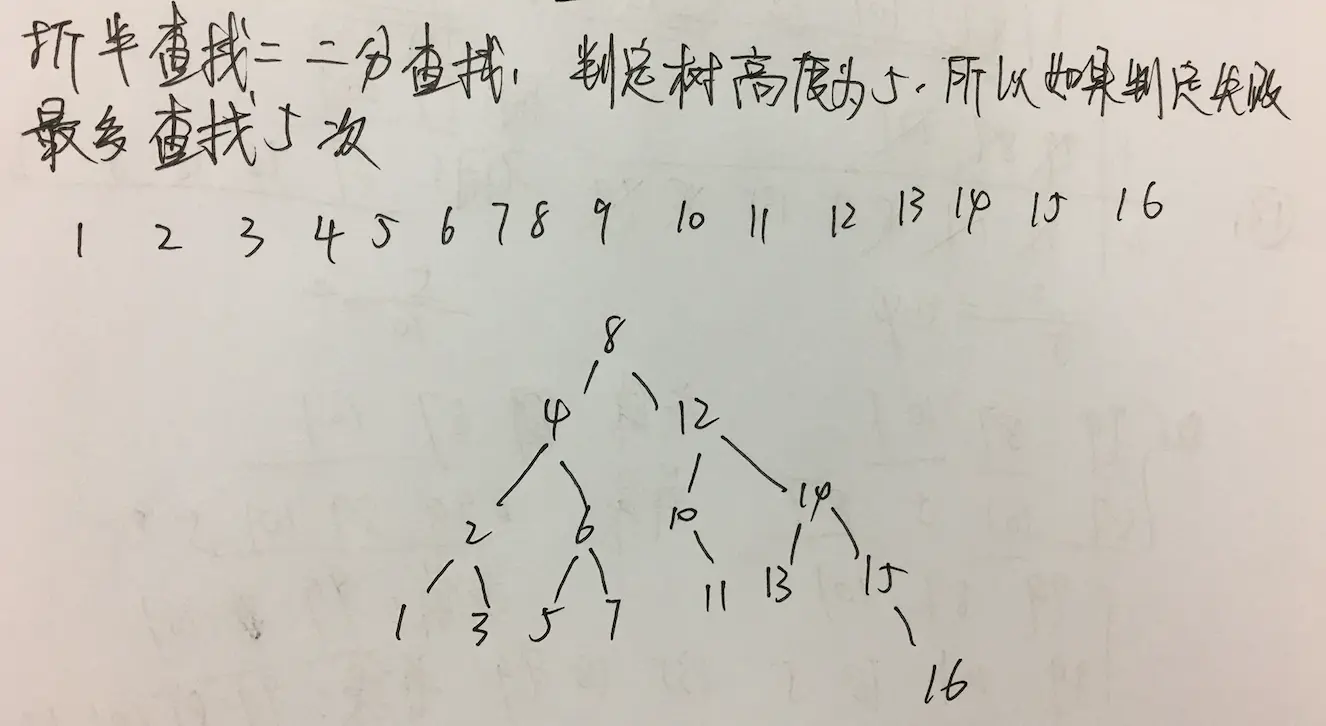 折半查找=二分查找,判定树高度为5.所以如果判定失败
最多查找5次
1 2 3 4 5 6 7 8 9 10 11 12 13 14 15 16
8
4 12
2 6 10 14
1 3 5 7 11 13 15
16